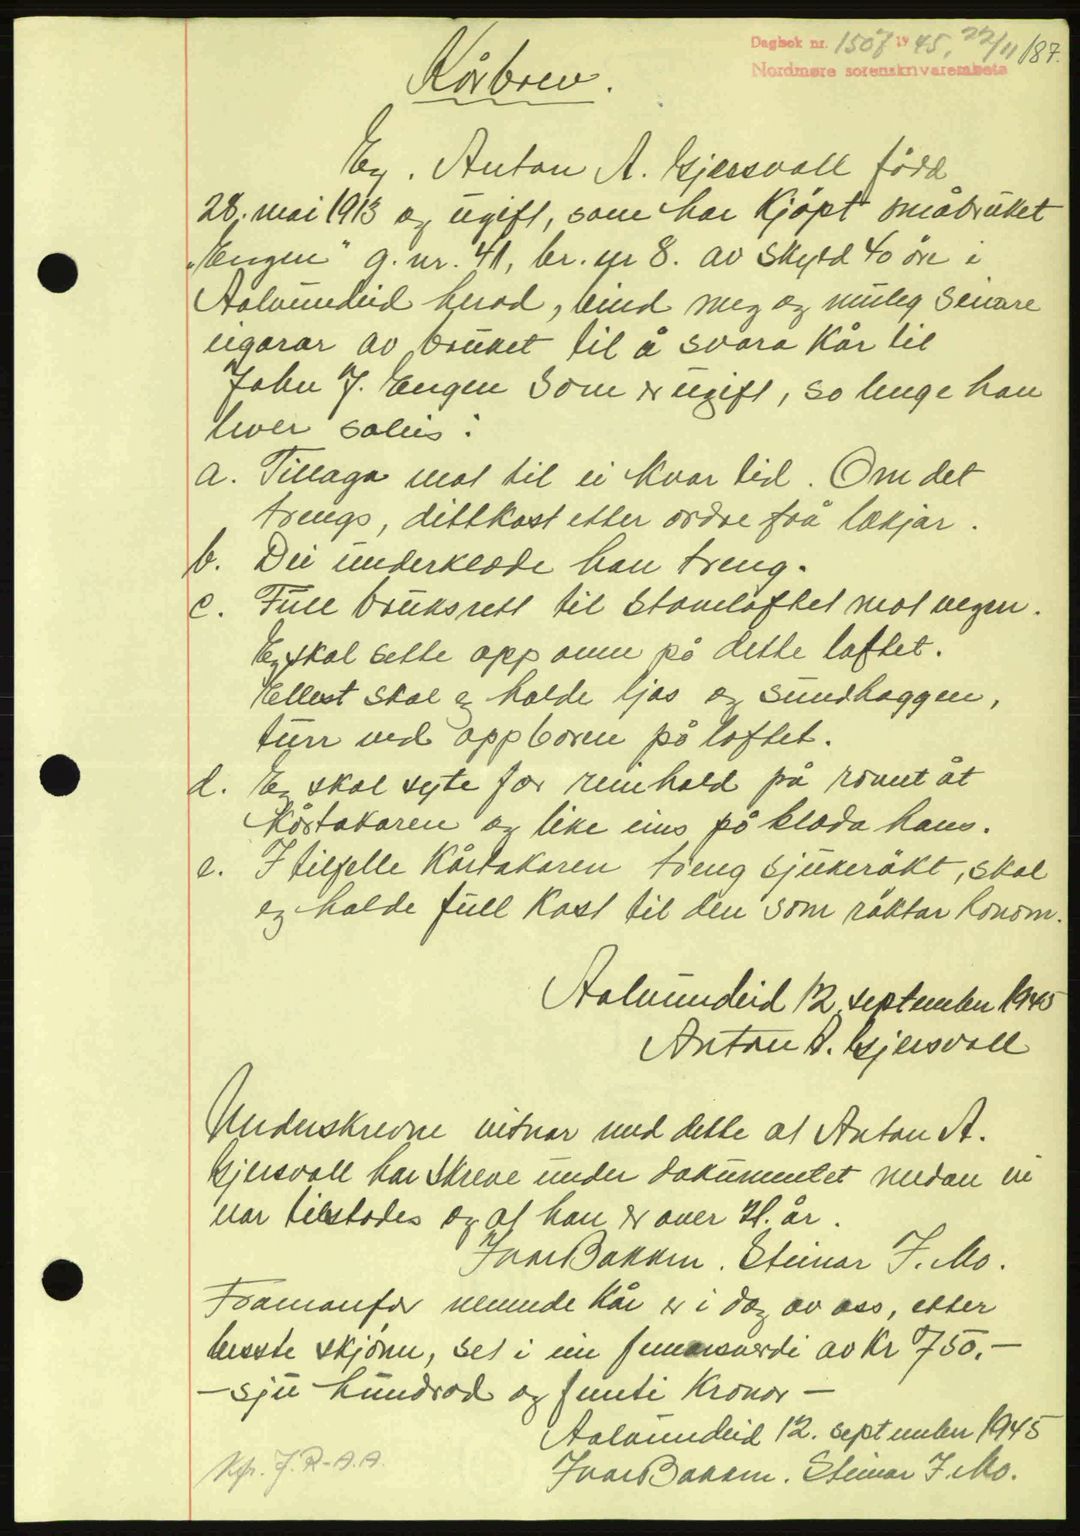 Dagbok nr. 1507 19 45, 22/11 187.
Nordmøre sorenskrivarembete
Kårbrev.
Eg, Anton A. Gjersvoll född
28. mai 1913 og ugift, som har kjöpt småbruket
"Engen" g. nr. 41, br. nr 8. av skyld 40 öre i
Aalvundeid herad, bind meg og muleg seinare
eigarar av bruket til å svara kår til
John J. Engen som er ugift, so lenge han
lever soleis:
a. Tillaga mat til ei kvar tid. Om det
trengs, diettkost etter ordre frå lækjar.
b. Dei underklæde han treng.
c. Full bruksrett til stoveloftet mot vegen.
Eg skal sette opp omn på dette loftet.
Ellest skal eg halde ljos og smudhoggen,
turr ved oppboren på loftet.
d. Eg skal syte for reinhald på romet åt
Kårtakaren og like eins på klæda hans.
e. I tilfelle Kårtakaren treng sjukerökt, skal
eg halde full kost til den som röktar honom.
Aalvundeid 12. september 1945
Anton A. Gjersvoll
Underskrevne vitnar med dette at Anton A.
Gjersvoll har skreve under dokumentet medan vi
var tilstades og at han er over 21. år.
Ivar Bakken. Steinar J. Mo.
Framanfor nemnde kår er i dag av oss, etter
beste skjönn, set i ein femårsverdi av Kr 750.-
- sju hundrad og femti kronor -
Aalvundeid 12. september 1945
Ivar Bakken. Steinar J. Mo.
Kfr. J. R - A.A.